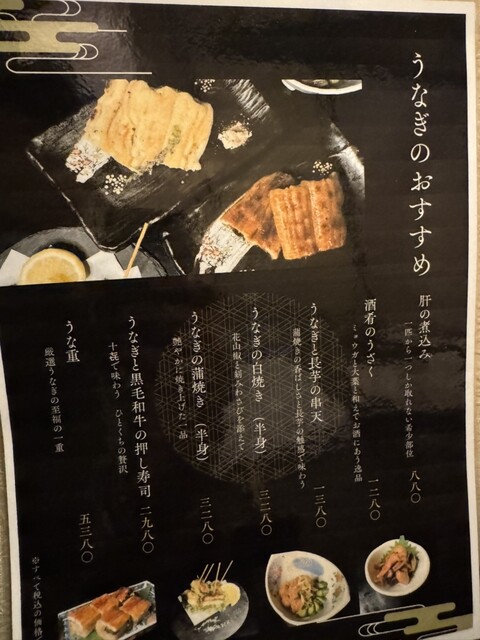 うなぎのおすすめ
肝の煮込み 八八〇
一匹から一つしか取れない希少部位
酒肴のうざく 一二八〇
ミョウガと大葉と和えてお酒にあう逸品
うなぎと長芋の串天 一三八〇
蒲焼きの香ばしさと長芋の触感で味わう
うなぎの白焼き(半身) 三二八〇
花山椒と刻みわさび・塩を添えて
うなぎの蒲焼き(半身) 三二八〇
艶やかに焼き上げた一品
うなぎと黒毛和牛の押し寿司 二九八〇
十㐂で味わう ひとくちの贅沢
うな重 五三八〇
厳選うなぎの至福の一重
※すべて税込の価格